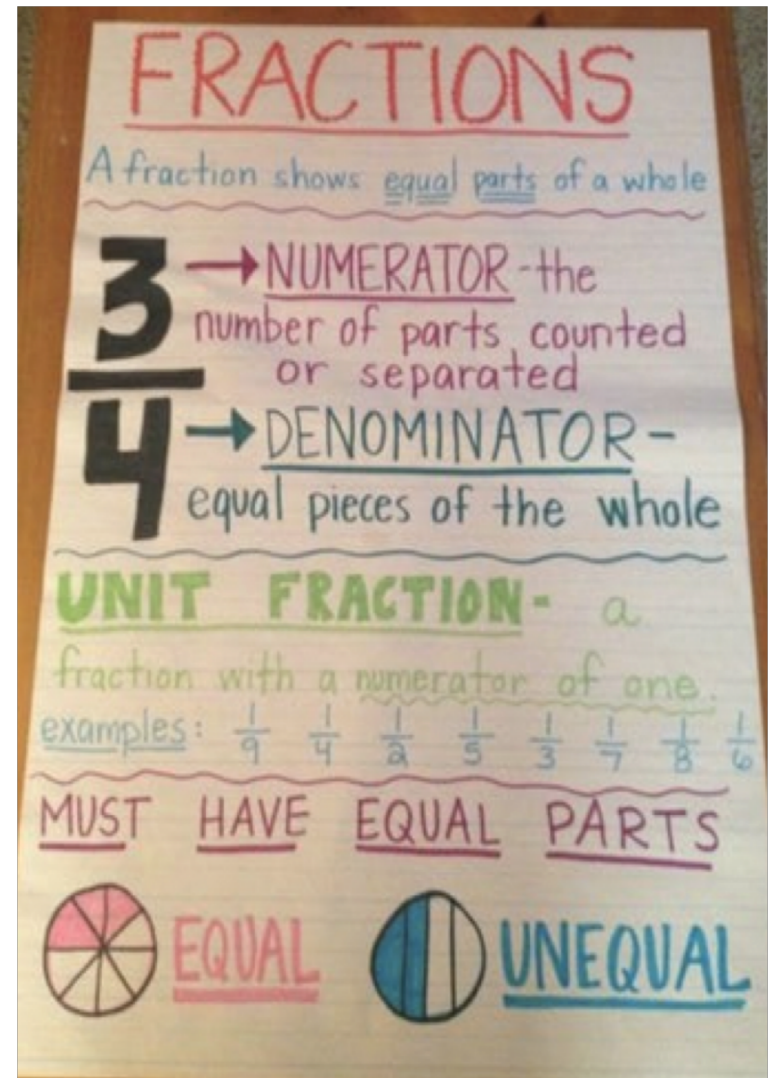 FRACTIONS
A fraction shows equal parts of a whole
3 → NUMERATOR - the
number of parts counted
or separated
4 → DENOMINATOR -
equal pieces of the whole
UNIT FRACTION - a
fraction with a numerator of one.
examples: 1/9 1/4 1/2 1/5 1/3 1/7 1/8 1/6
MUST HAVE EQUAL PARTS
EQUAL UNEQUAL